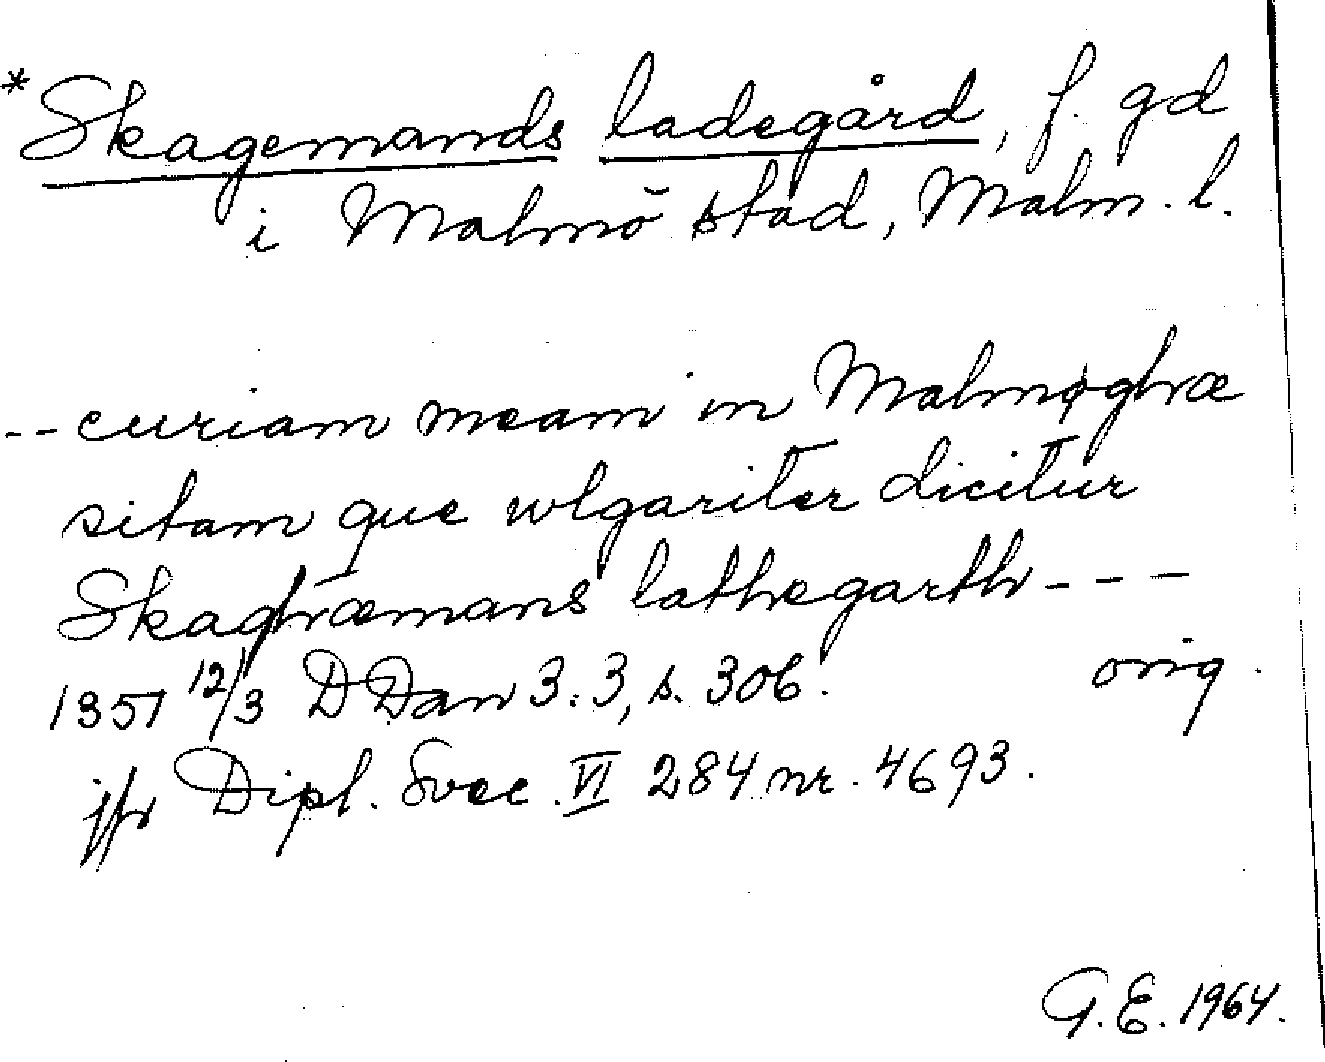 *Skagemands ladegård, f. gd
i Malmö stad, Malm. l.
-- curiam meam in Malmøghæ
sitam que wlgariter dicitur
Skaghæmans lathegarth ---
1351 12/3 DDan 3:3, s. 306. orig.
jfr Dipl. Svec. VI 284 nr. 4693.
G.E. 1964.